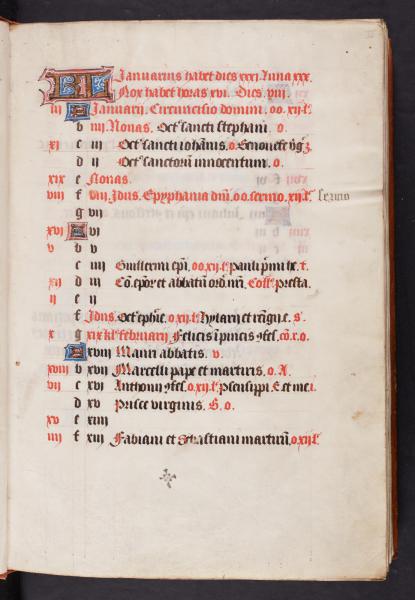 KL Januarius habet dies xxxi. Luna xxx.
Nox habet horas xvi. Dies. viii
iii A Januarii. Circumcisio domini. oo. xii. l.
b iiii. Nonas. Oct' sancti stephani. o.
xi c iii Oct' sancti iohannis. o. Genouefe
d ii Oct' sanctorum innocentum. o.
xix e Nonas.
viii f viii Idus. Epyphania dni. oo. sermo. xii. l. sermo
g vii
xvi A vi
v b v
c iiii Guillermi epi. oo. xii. l. Pauli
xiii d iii Co. epor et abbatu ord. nri. Coll.
ii e ii
f Idus. Oct' ephie. o. xii. l. hylarii et remigii. c. s.
x g xix kl' februarii. Felicis
A xviii Mauri abbatis. v.
xviii b xvii Marcelli pape et martiris. o. A.
vii c xvi Anthonii o. xii. l.
d xv Prisce virginis. o.
xv e xiiii
iiii f xiii Fabiani et Sebastiani martirum. o. xii. l.